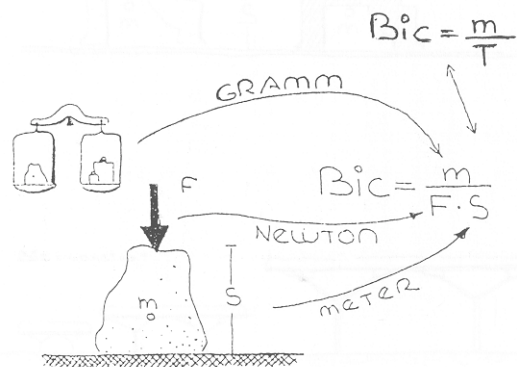 Bic = m/T
GRAMM
F
Bic = m/F·S
NEWTON
m
o
S
METER